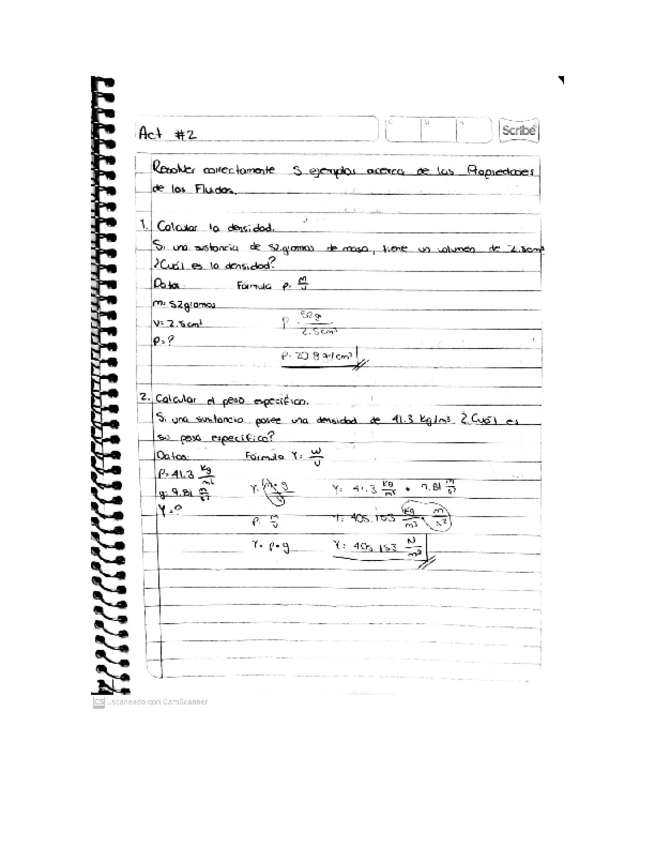 Act #2
Scribe
Resolver correctamente 5 ejemplos acerca de las Propiedades
de los Fluidos.
1. Calcular la densidad.
Si una sustancia de 52 gramos de masa, tiene un volumen de 2.5cm³
¿Cuál es la densidad?
Datos Formula ρ= m/v
m= 52 gramos
v= 2.5 cm³ ρ= 52g / 2.5cm³
ρ=?
ρ= 20.8 gr/cm³
2. Calcular el peso especifico.
Si una sustancia posee una densidad de 41.3 Kg/m³ ¿Cuál es
su peso especifico?
Datos: Formula γ= w/v
ρ= 41.3 Kg/m³
g= 9.81 m/s² γ= m·g/v γ= 41.3 Kg/m³ • 9.81 m/s²
γ=?
ρ= m/v γ= 405.153 Kg/m³ · m/s²
γ= ρ•g γ= 405.153 N/m³
CS Escaneado con CamScanner